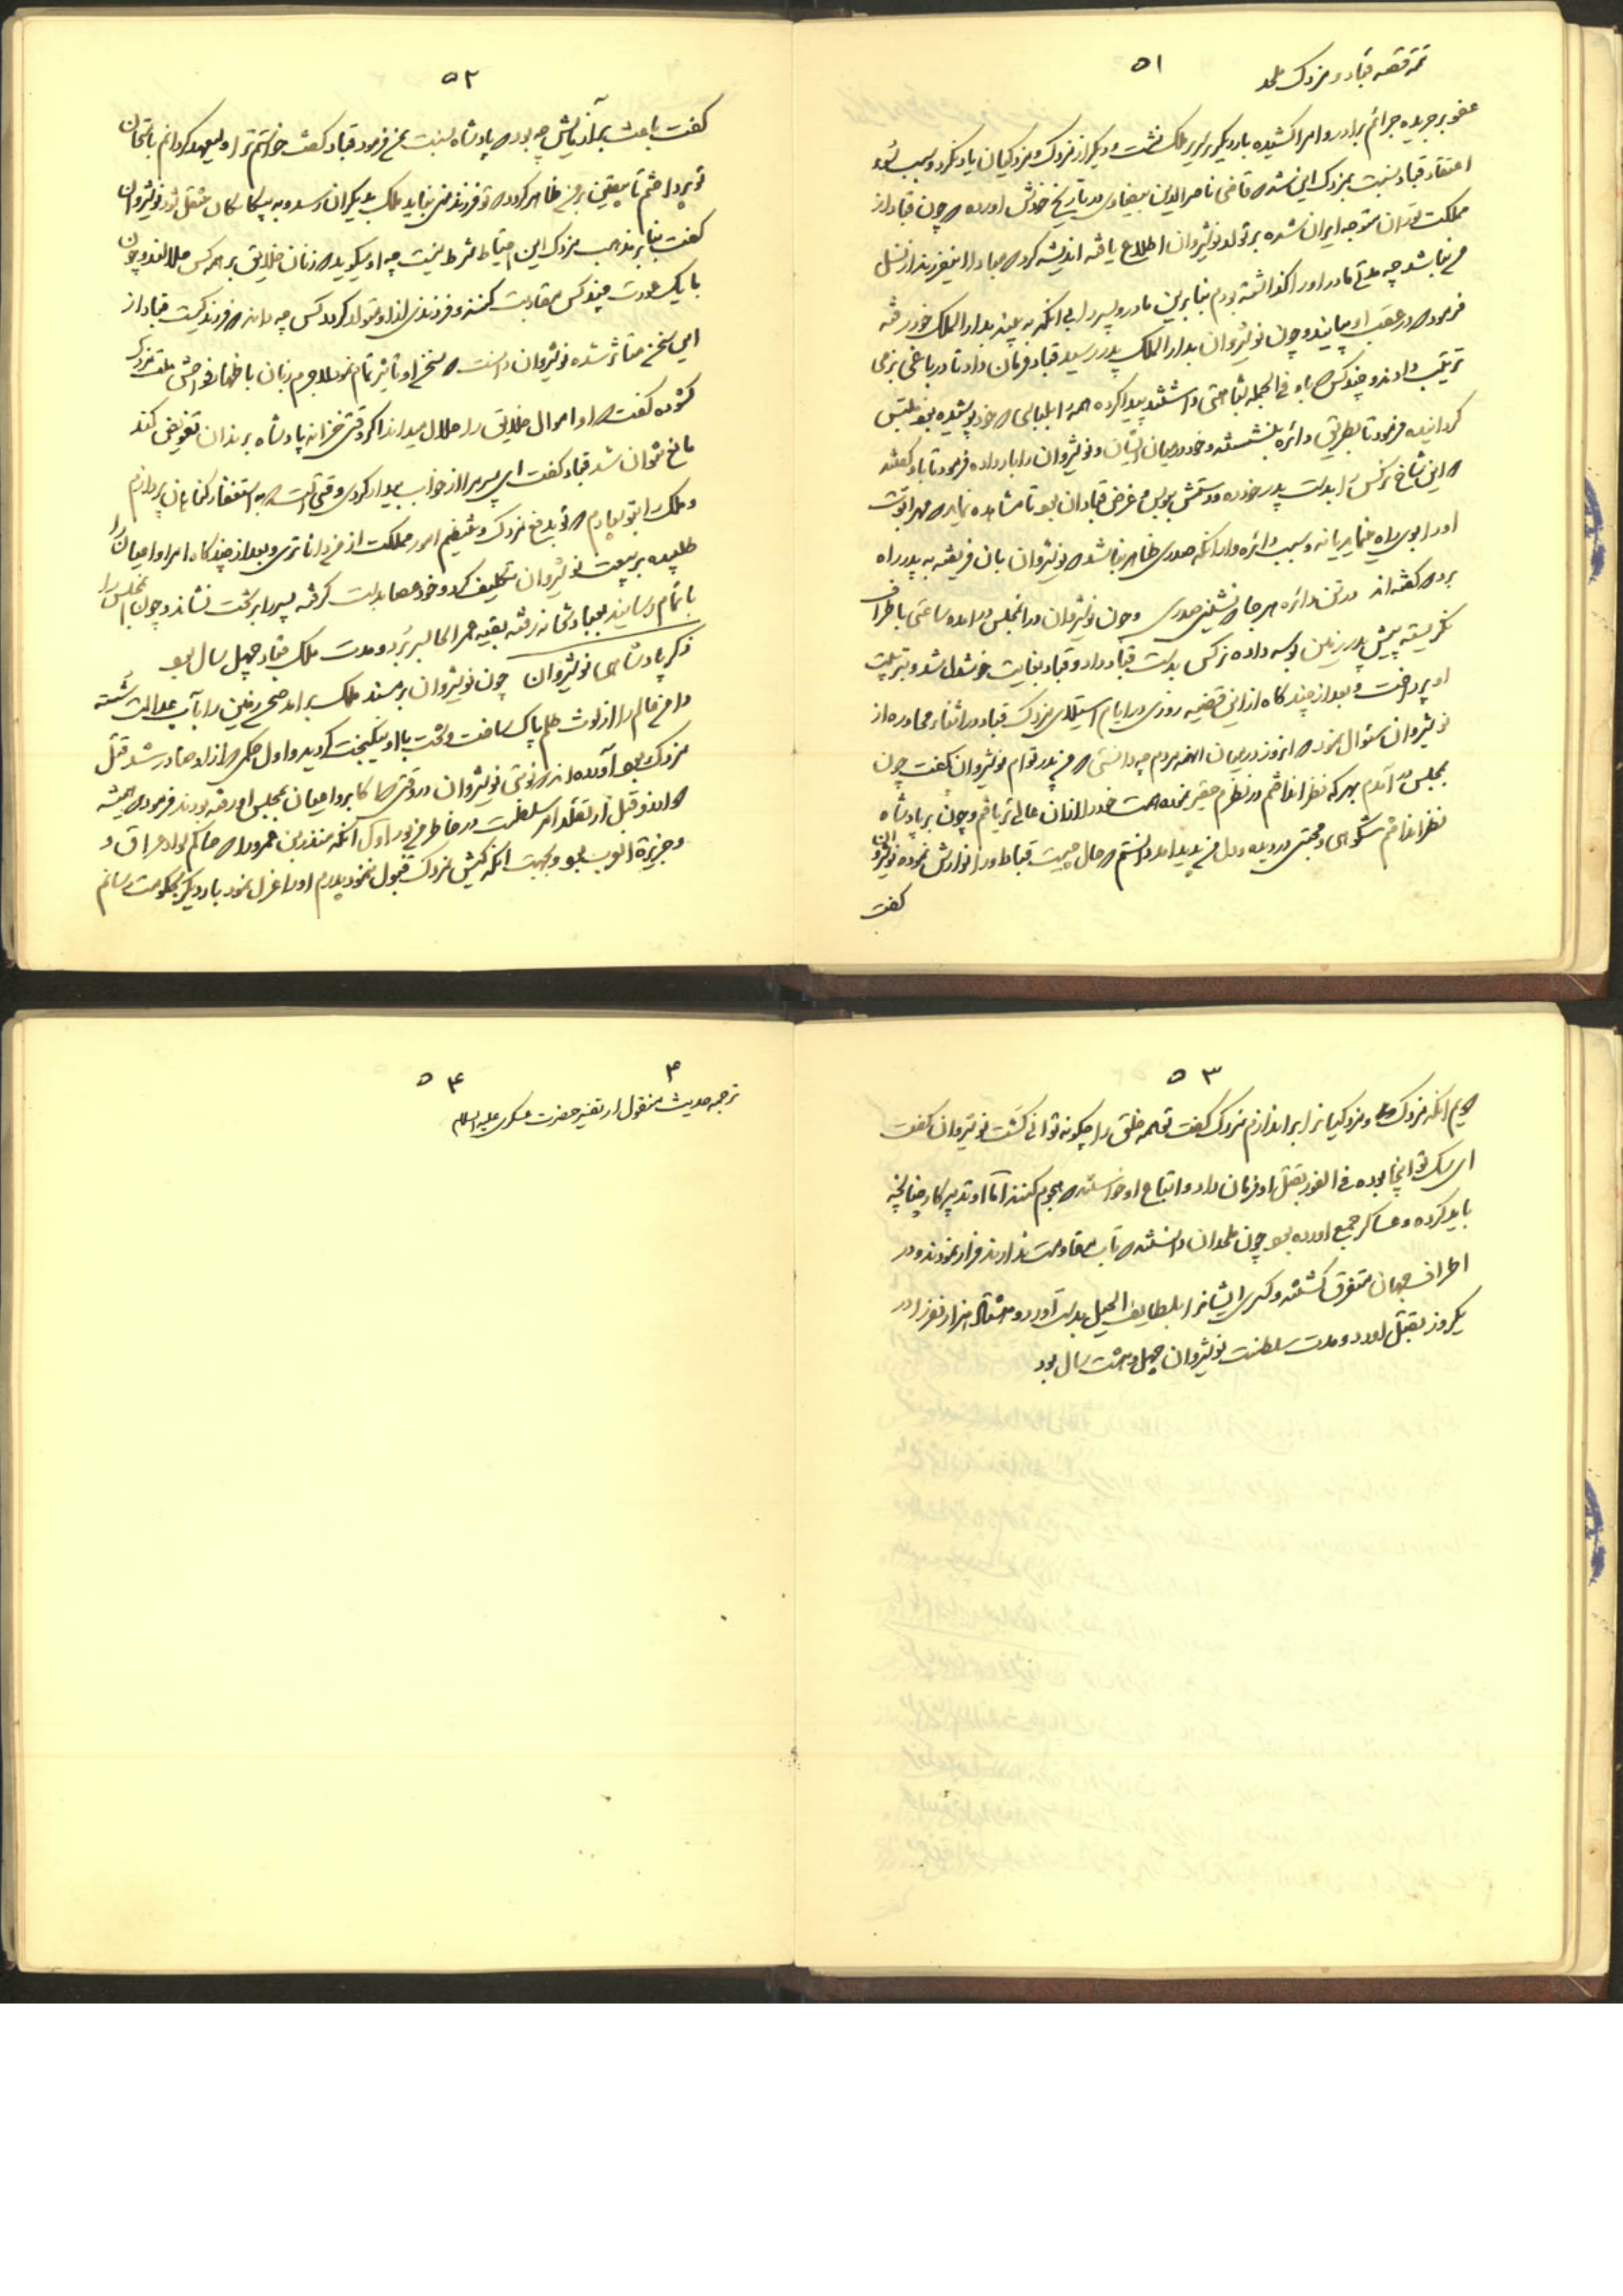 ۵۱
تتمه قصه قباد و مزدک ملحد
عفو بر جریده جرائم برادر و امرا کشیده بار دیگر بر سریر ملک نشست و دیگر از مزدک و مزدکیان یاد نکرد و سبب سوء
اعتقاد قباد نسبت بمزدک این شد که قاضی ناصرالدین بیضاوی در تاریخ خودش اورده که چون قباد از
مملکت توران متوجه ایران شده بر تولد نوشیروان اطلاع یافته اندیشه کرد که مبادا این فرزند از نسل
من نباشد چه مادر اورا گذاشته بودم بنابرین مادر و پسر را بی انکه به بیند بدار الملک خود رفته
فرمود که در عقب او بیایند و چون نوشیروان بدار الملک پدر رسید قباد فرمان داد تا در باغی بزمی
ترتیب دادند و چند کس که با وی فی الجمله شباهتی داشتند پیدا کرده همه را بلباسی که خود پوشیده بود ملبس
گردانیده فرمود تا بطریق دائره بنشستند و خود در میان ایشان و نوشیروان را بار داده فرمود تا باو گفتند
که این شاخ نرگس را بدست پدر خود ده و دستش ببوس و غرض قباد ان بود تا مشاهده نماید که مهر ابوت
اورا بوی راه مینماید یا نه و سبب دائره وار انکه صدری ظاهر نباشد که نوشیروان بان قرینه به پدر راه
برد که گفته اند در تن دائره هر جا که نشینی صدری و چون نوشیروان در ان مجلس درامده ساعتی باطراف
نگریسته پیش پدر زمین بوسه داده نرگس بدست قباد داد و قباد بغایت خوشدل شد و بتربیت
او پرداخت و بعد از چند گاه ازین قضیه روزی در ایام استیلای مزدک قباد در اثناء محاوره از
نوشیروان سئوال نمود که انروز در میان انهمه مردم چه دانستی که من پدر توام نوشیروان گفت چون
بمجلس در آمدم بهر که نظر انداختم در نظرم حقیر نمود همت خود را از ان عالی تر یافتم و چون بر پادشاه
نظر انداختم شکوهی و محبتی در دیده و دل من پدید امد دانستم که حال چیست قباد اورا نوازش نموده نوشیروان
گفت
۵۲
گفت باعث بر آزمایش چه بود که پادشاه نسبت بمن فرمود قباد گفت خواستم ترا ولیعهد گردانم بامتحان
تو پرداختم تا بیقین بر من ظاهر گردد که تو فرزند منی نباید ملک بدیگران رسد و به بیگانگان منتقل شود نوشیروان
گفت بنا بر مذهب مزدک این احتیاط شرط نیست چه او میگوید که زنان خلایق بر همه کس حلالند و چون
با یک عورت چند کس مقاربت کنند و فرزندی از او متولد گردد کس چه داند که فرزند کیست قباد از
این سخن متأثر شده نوشیروان دانست که سخن او تاثیر تمام نمود لاجرم زبان باظهار فواحش ملت مزدک
گشوده گفت که او اموال خلایق را حلال میداند اگر وقتی خزانه پادشاه برندان تفویض کند
مانع نتوان شد قباد گفت ای پسر مرا از خواب بیدار کردی وقتی است که به استغفار گناهان پردازم
و ملک را بتو سپارم که تو بدفع مزدک و تنظیم امور مملکت از من داناتری و بعد از چند گاه امرا و اعیان را
طلبیده بر بیعت نوشیروان تکلیف کرد و خود عصا بدست گرفته پسر را بر تخت نشاند و چون مجلس را
باتمام رسانید بعبادتخانه رفته بقیه عمر انجا بسر برد و مدت ملک قباد چهل سال بود
ذکر پادشاهی نوشیروان چون نوشیروان بر مسند ملک برامد صحن زمین را بآب عدالت شسته
دامن عالم را از لوث ظلم پاک ساخت و تخت با او نیکبخت گردید و اول حکمی که از او صادر شد قتل
مزدک بود آورده اند که نوشیروان در وقتی که اکابر و اعیان بمجلس او رفته بودند فرمود که همیشه
دو اندیشه قبل از تقلد امر سلطنت در خاطر من بود اول آنکه منذر بن عمرو را که حاکم سواد عراق و
و جزیرة العرب بود و بجهت انکه کیش مزدک قبول ننمود پدرم اورا عزل نمود بار دیگر بحکومت رسانم
۵۳
دویم انکه مزدک و مزدکیانرا براندازم مزدک گفت تو همه خلق را چگونه توانی کشت نوشیروان گفت
ای سگ تو اینجا بوده فی الفور بقتل او فرمان داد و اتباع او خواستند که هجوم کنند اما او تدبیر کار چنانچه
باید کرده و عساکر جمع اورده بود چون ملحدان دانستند که تاب مقاومت ندارند فرار نمودند و در
اطراف جهان متفرق گشتند و کسری ایشانرا بلطایف الحیل بدست آورد و هشتاد هزار نفر را در
یکروز بقتل اورد و مدت سلطنت نوشیروان چهل و هشت سال بود
۵۴
۳
ترجمه حدیث منقول از تفسیر حضرت عسکری علیه السلام